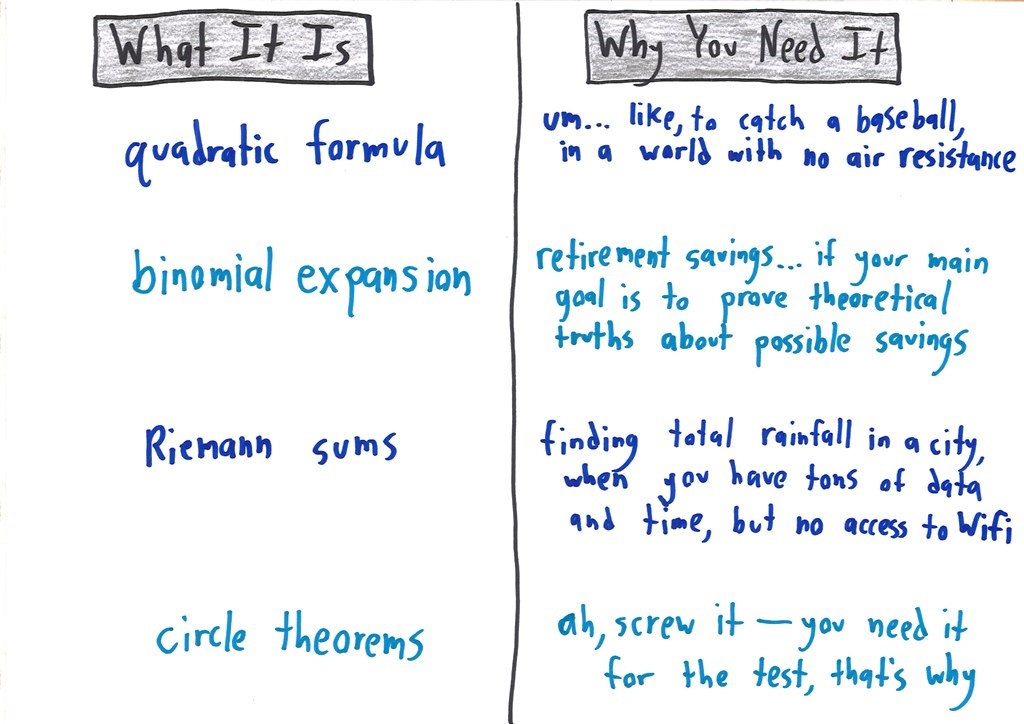 What It Is
Why You Need It
quadratic formula
um... like, to catch a baseball,
in a world with no air resistance
binomial expansion
retirement savings... if your main
goal is to prove theoretical
truths about possible savings
Riemann sums
finding total rainfall in a city,
when you have tons of data
and time, but no access to Wifi
circle theorems
ah, screw it — you need it
for the test, that's why